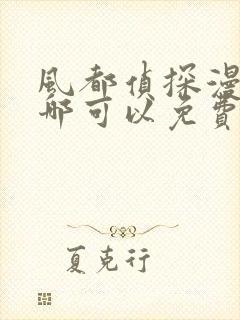 風都偵探漫
哪可以免費
夏克行